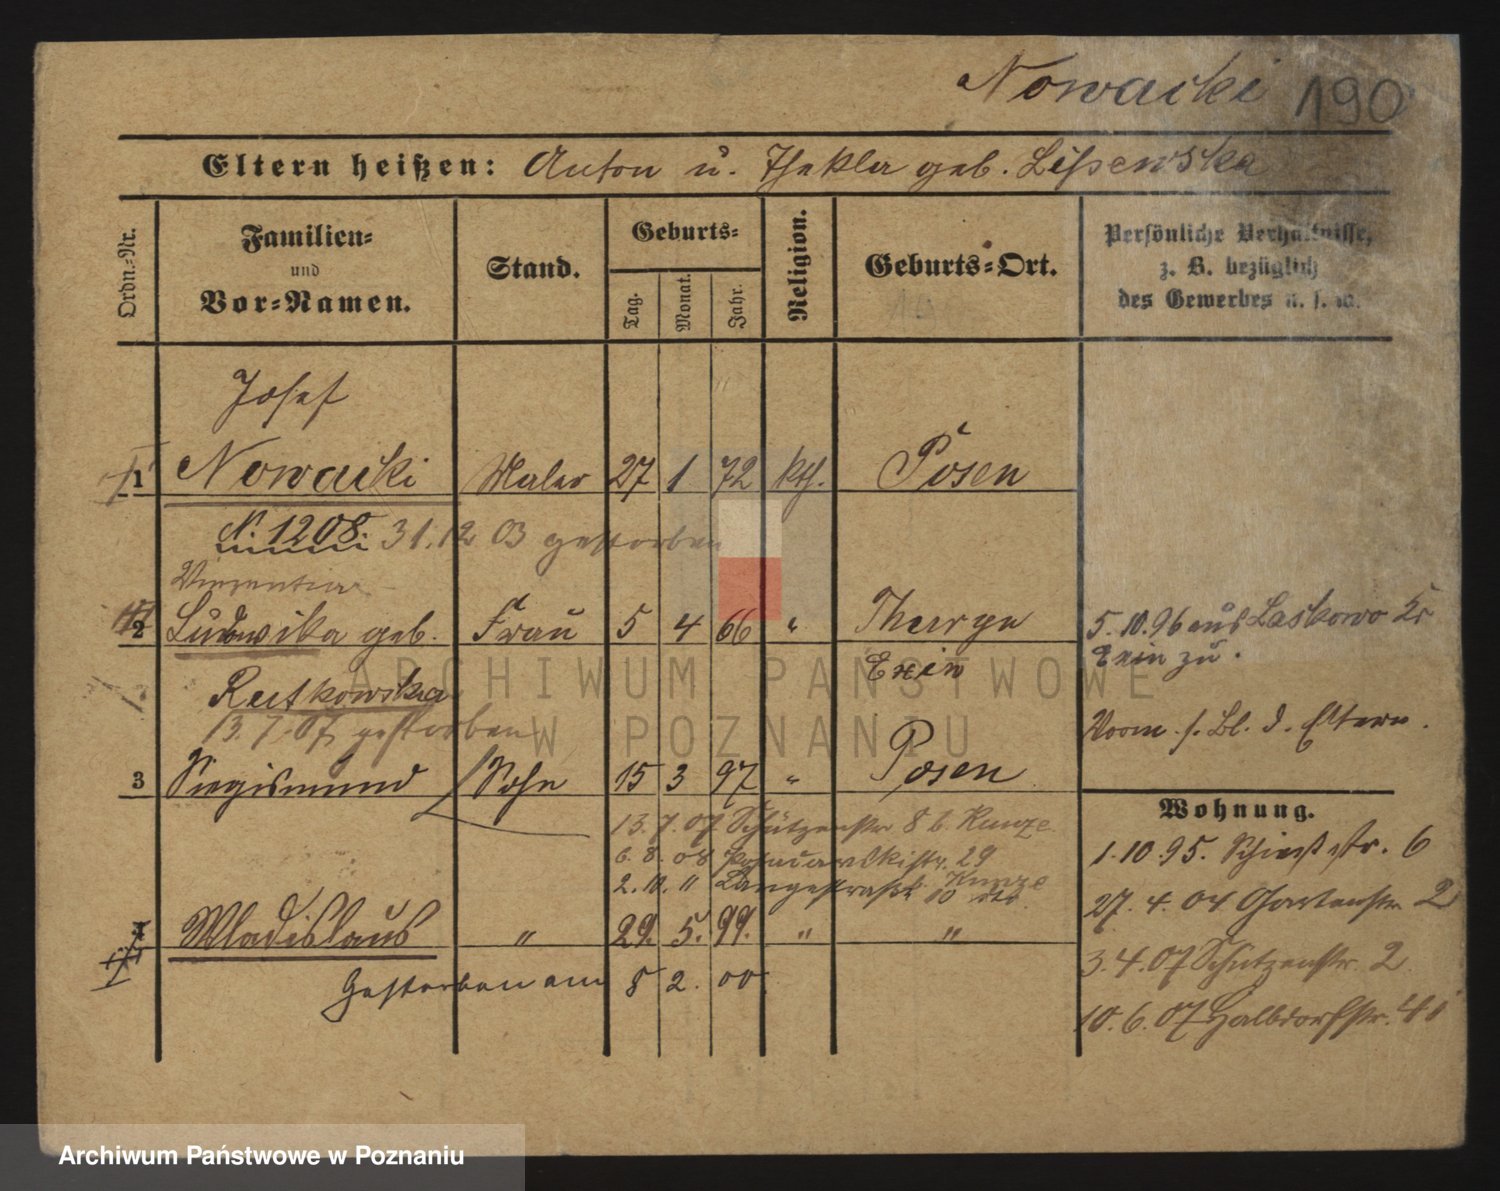 Nowacki 190
Eltern heißen: Anton u. Thekla geb. Lissewska
Ordn.-Nr.
Familien-
und
Vor-Namen.
Stand.
Geburts-
Tag.
Monat.
Jahr.
Religion.
Geburts-Ort.
Persönliche Verhältnisse,
z. B. bezüglich
des Gewerbes u. s. w.
Josef
1 Nowacki Maler 27 1 72 kth. Posen
N. 1208. 31.12 03 gestorben
2 Ludwika geb. Frau 5 4 66 "
Exin
Rutkowska
13.7.07 gestorben
5.10.96 aus Laskowo Kr
Exin zu.
Vorm. s. Bl. d. Eltern.
3 Siegismund Sohn 15 3 97 " Posen
13.7.07 Schützenstr 8 b. Kunze
6.8.08 29
2.10. " Langestraße Kunze
Wladislaus " 29. 5. 99. " "
Gestorben am 8 2. 00.
Wohnung.
1.10.95. Schiesstr. 6
27.4.04 Gartenstr 2
3.4.07 Schützenstr. 2
10.6.07 Halbdorfstr.
ARCHIWUM PAŃSTWOWE
W POZNANIU
Archiwum Państwowe w Poznaniu